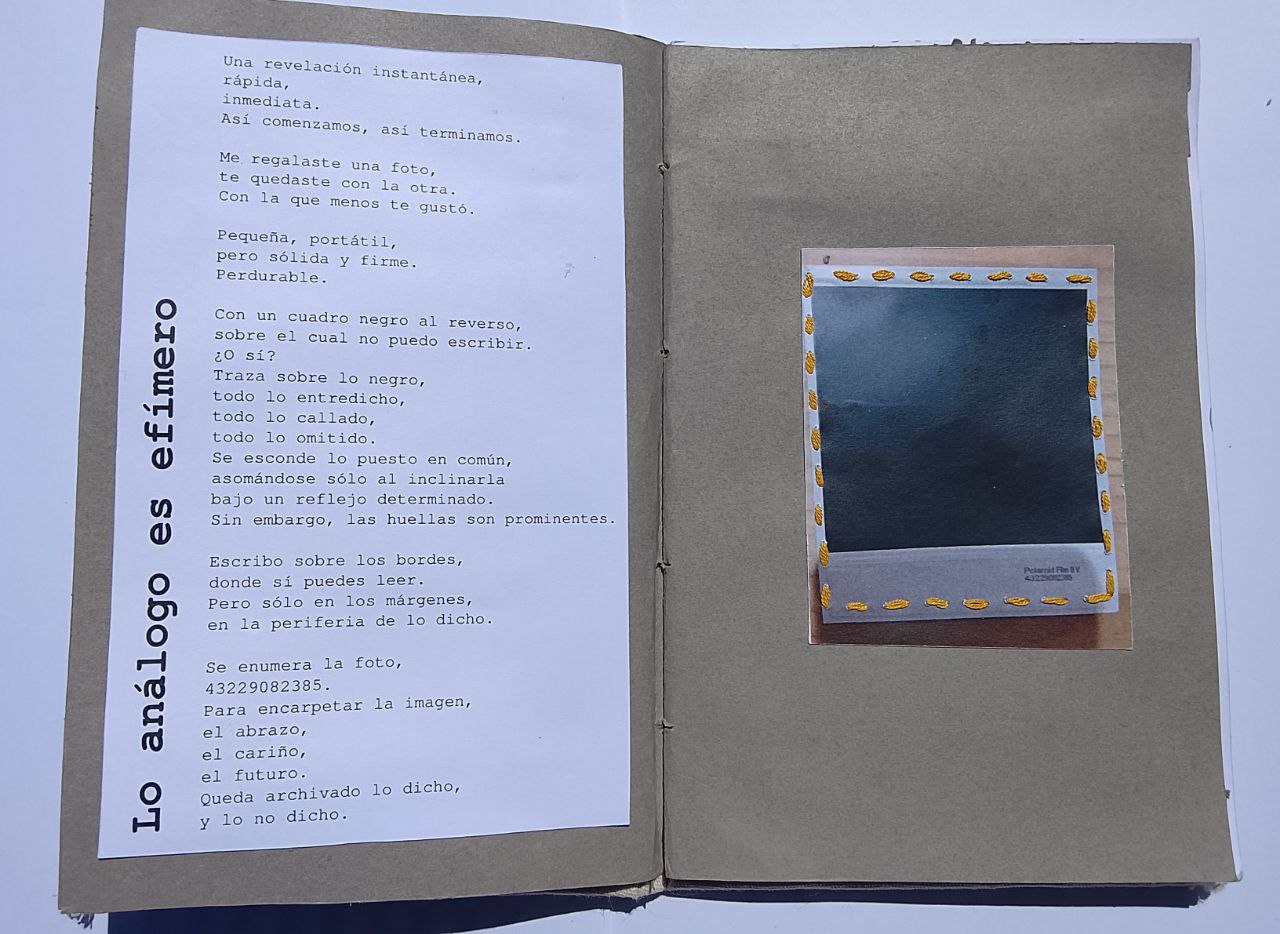 Lo análogo es efímero
Una revelación instantánea,
rápida,
inmediata.
Así comenzamos, así terminamos.
Me regalaste una foto,
te quedaste con la otra.
Con la que menos te gustó.
Pequeña, portátil,
pero sólida y firme.
Perdurable.
Con un cuadro negro al reverso,
sobre el cual no puedo escribir.
¿O sí?
Traza sobre lo negro,
todo lo entredicho,
todo lo callado,
todo lo omitido.
Se esconde lo puesto en común,
asomándose sólo al inclinarla
bajo un reflejo determinado.
Sin embargo, las huellas son prominentes.
Escribo sobre los bordes,
donde sí puedes leer.
Pero sólo en los márgenes,
en la periferia de lo dicho.
Se enumera la foto,
43229082385.
Para encarpetar la imagen,
el abrazo,
el cariño,
el futuro.
Queda archivado lo dicho,
y lo no dicho.
Polaroid Film
43229082385